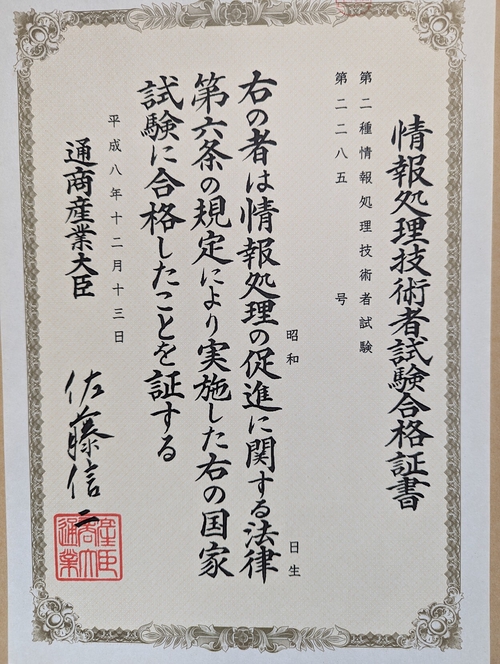 情報処理技術者試験合格証書
第二種情報処理技術者試験
第二二八五 号
昭和 日生
右の者は情報処理の促進に関する法律
第六条の規定により実施した右の国家
試験に合格したことを証する
平成八年十二月十三日
通商産業大臣
佐藤信二